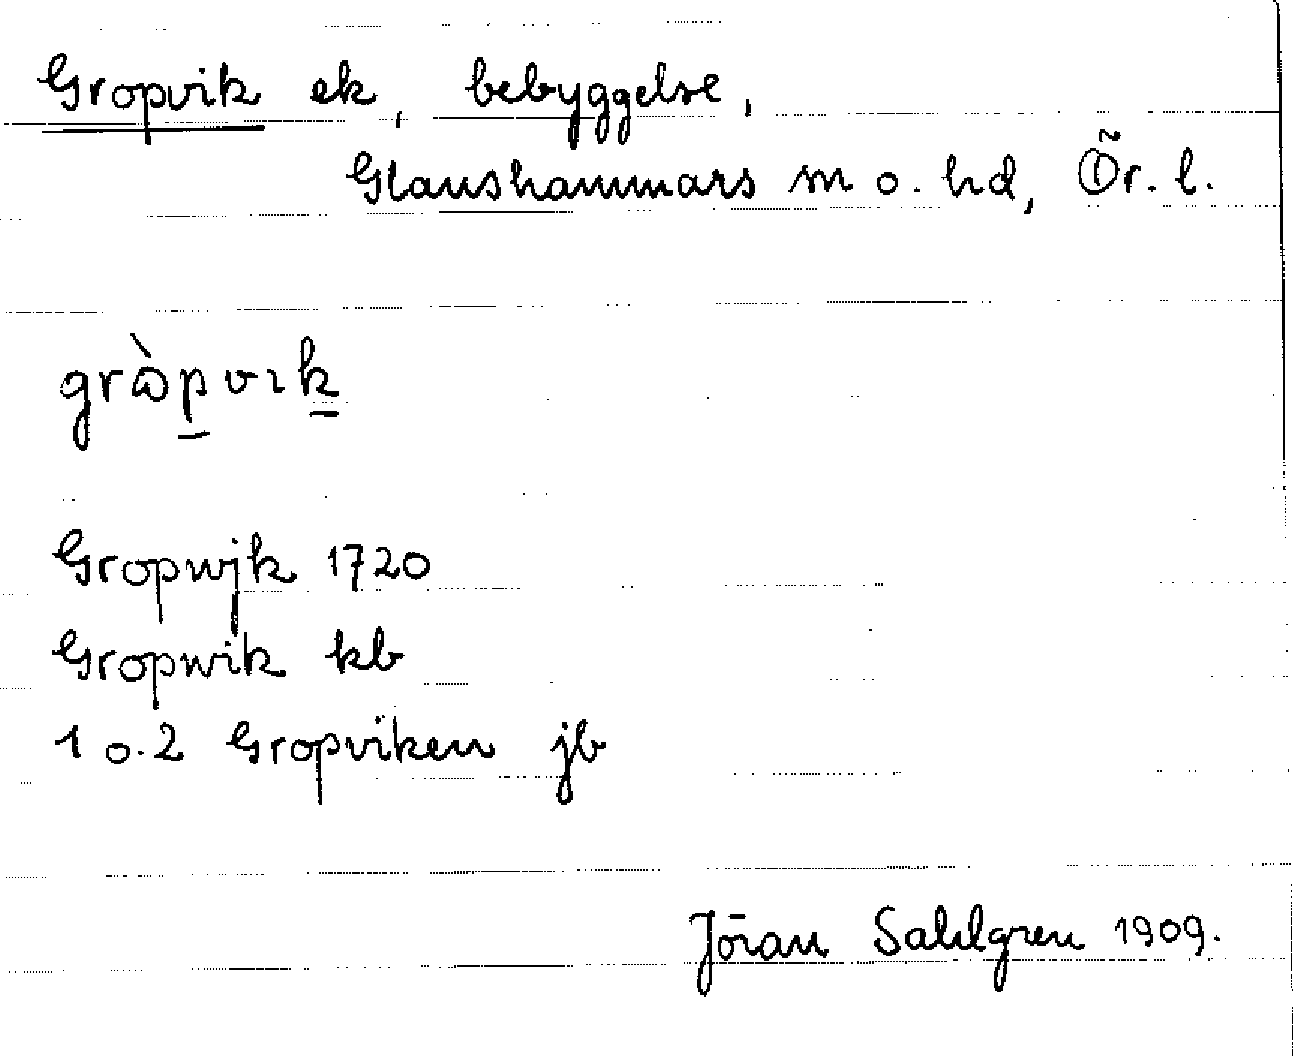 Gropvik ek, bebyggelse,
Glanshammars sn o. hd, Ör. l.
grὼpvık
Gropwjk 1720
Gropwik kb
1 o. 2 Gropviken jb
Jöran Sahlgren 1909.